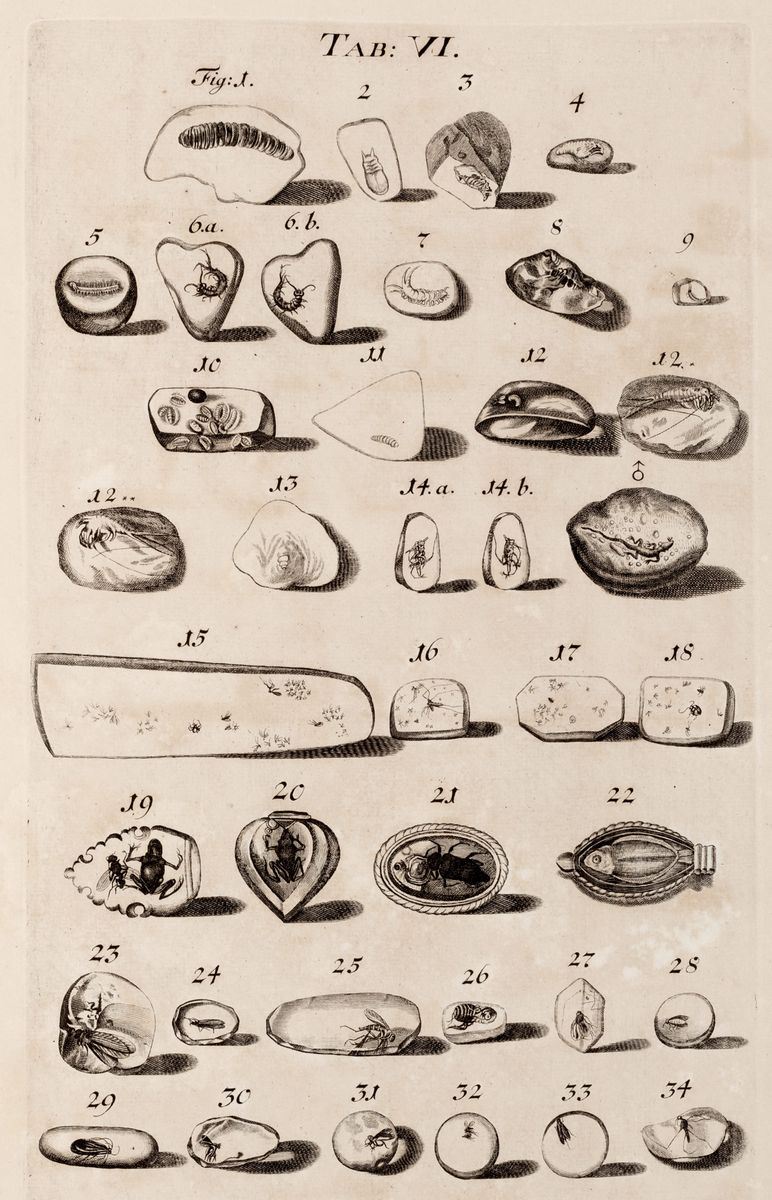 TAB: VI.
Fig: 1. 2 3 4
5 6.a. 6.b. 7 8 9
10 11 12 12..
12.. 13 14.a. 14.b. ♂
15 16 17 18
19 20 21 22
23 24 25 26 27 28
29 30 31 32 33 34